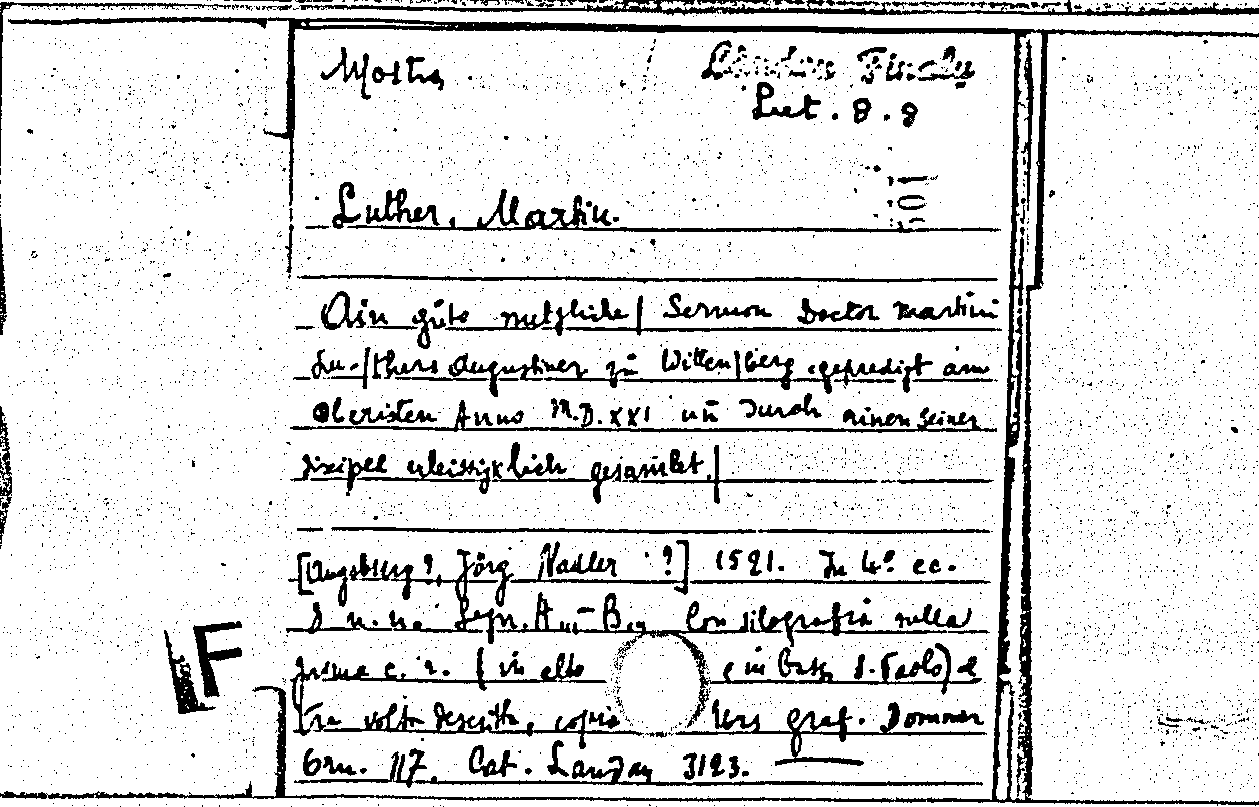 Mostra
Landau Finaly
Lut. 8.8
Luther, Martin.
Ain gůte nutzliche / Sermon Doctor Martini
Lu-/thers Augustiner zů Witten/berg geprediget am
Obristen Anno M.D.XXI uñ durch ainen seiner
discipel gesamlet. /
[Augsburg?, Jörg Nadler ?] 1521. In 4º cc.
8 n. n. Segn. A B Con silografia nella
prima c. r. (in alto e in basso, S. Paolo) e
volta descritta, copia graf. Dommer
Orn. 117. Cat. Landau 3123.
F